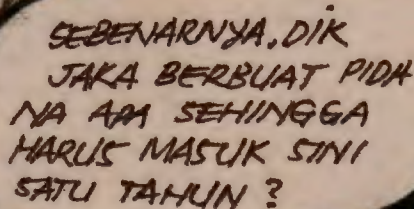 SEBENARNYA, DIK
JAKA BERBUAT PIDA
NA APA SEHINGGA
HARUS MASUK SINI
SATU TAHUN?